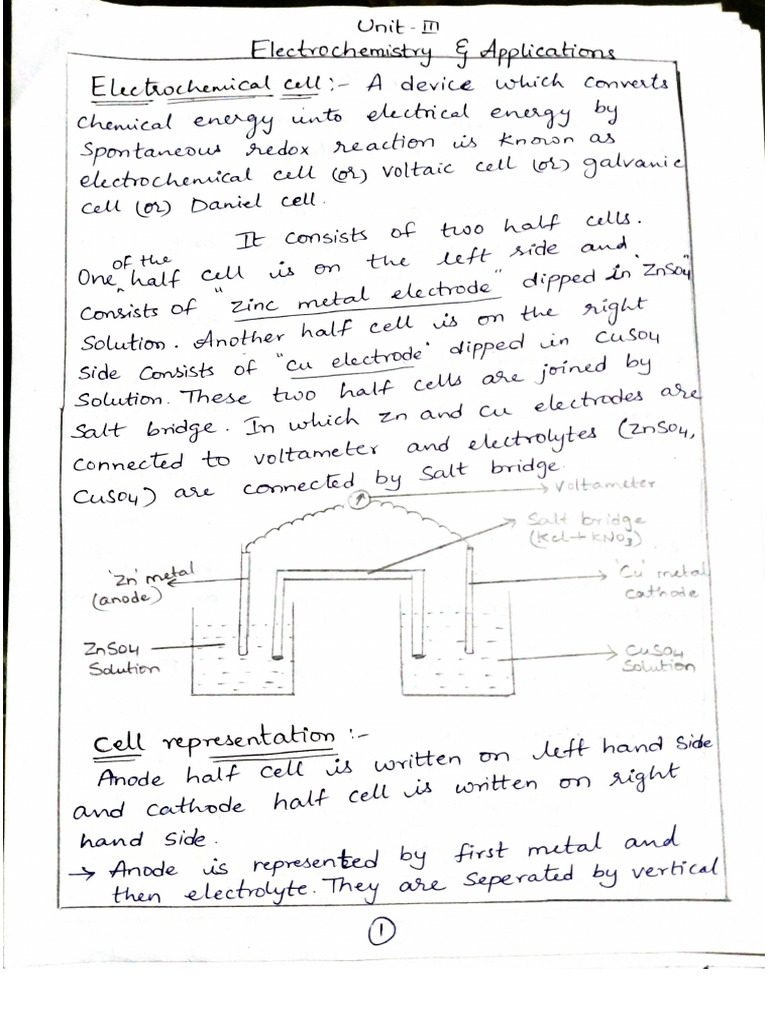 Unit - III
Electrochemistry & Applications
Electrochemical cell :- A device which converts
chemical energy into electrical energy by
spontaneous redox reaction is known as
electrochemical cell (or) voltaic cell (or) galvanic
cell (or) Daniel cell.
It consists of two half cells.
One of the half cell is on the left side and
consists of "Zinc metal electrode" dipped in "ZnSO4"
Solution. Another half cell is on the right
side consists of "Cu electrode" dipped in CuSO4
Solution. These two half cells are joined by
Salt bridge. In which Zn and Cu electrodes are
connected to voltameter and electrolytes (ZnSO4,
CuSO4) are connected by Salt bridge.
Voltameter
Salt bridge
(Kcl + KNO3)
'Zn' metal
(anode)
'Cu' metal
cathode
ZnSO4
Solution
CuSO4
Solution
Cell representation :-
Anode half cell is written on left hand side
and cathode half cell is written on right
hand side.
→ Anode is represented by first metal and
then electrolyte. They are seperated by vertical
1